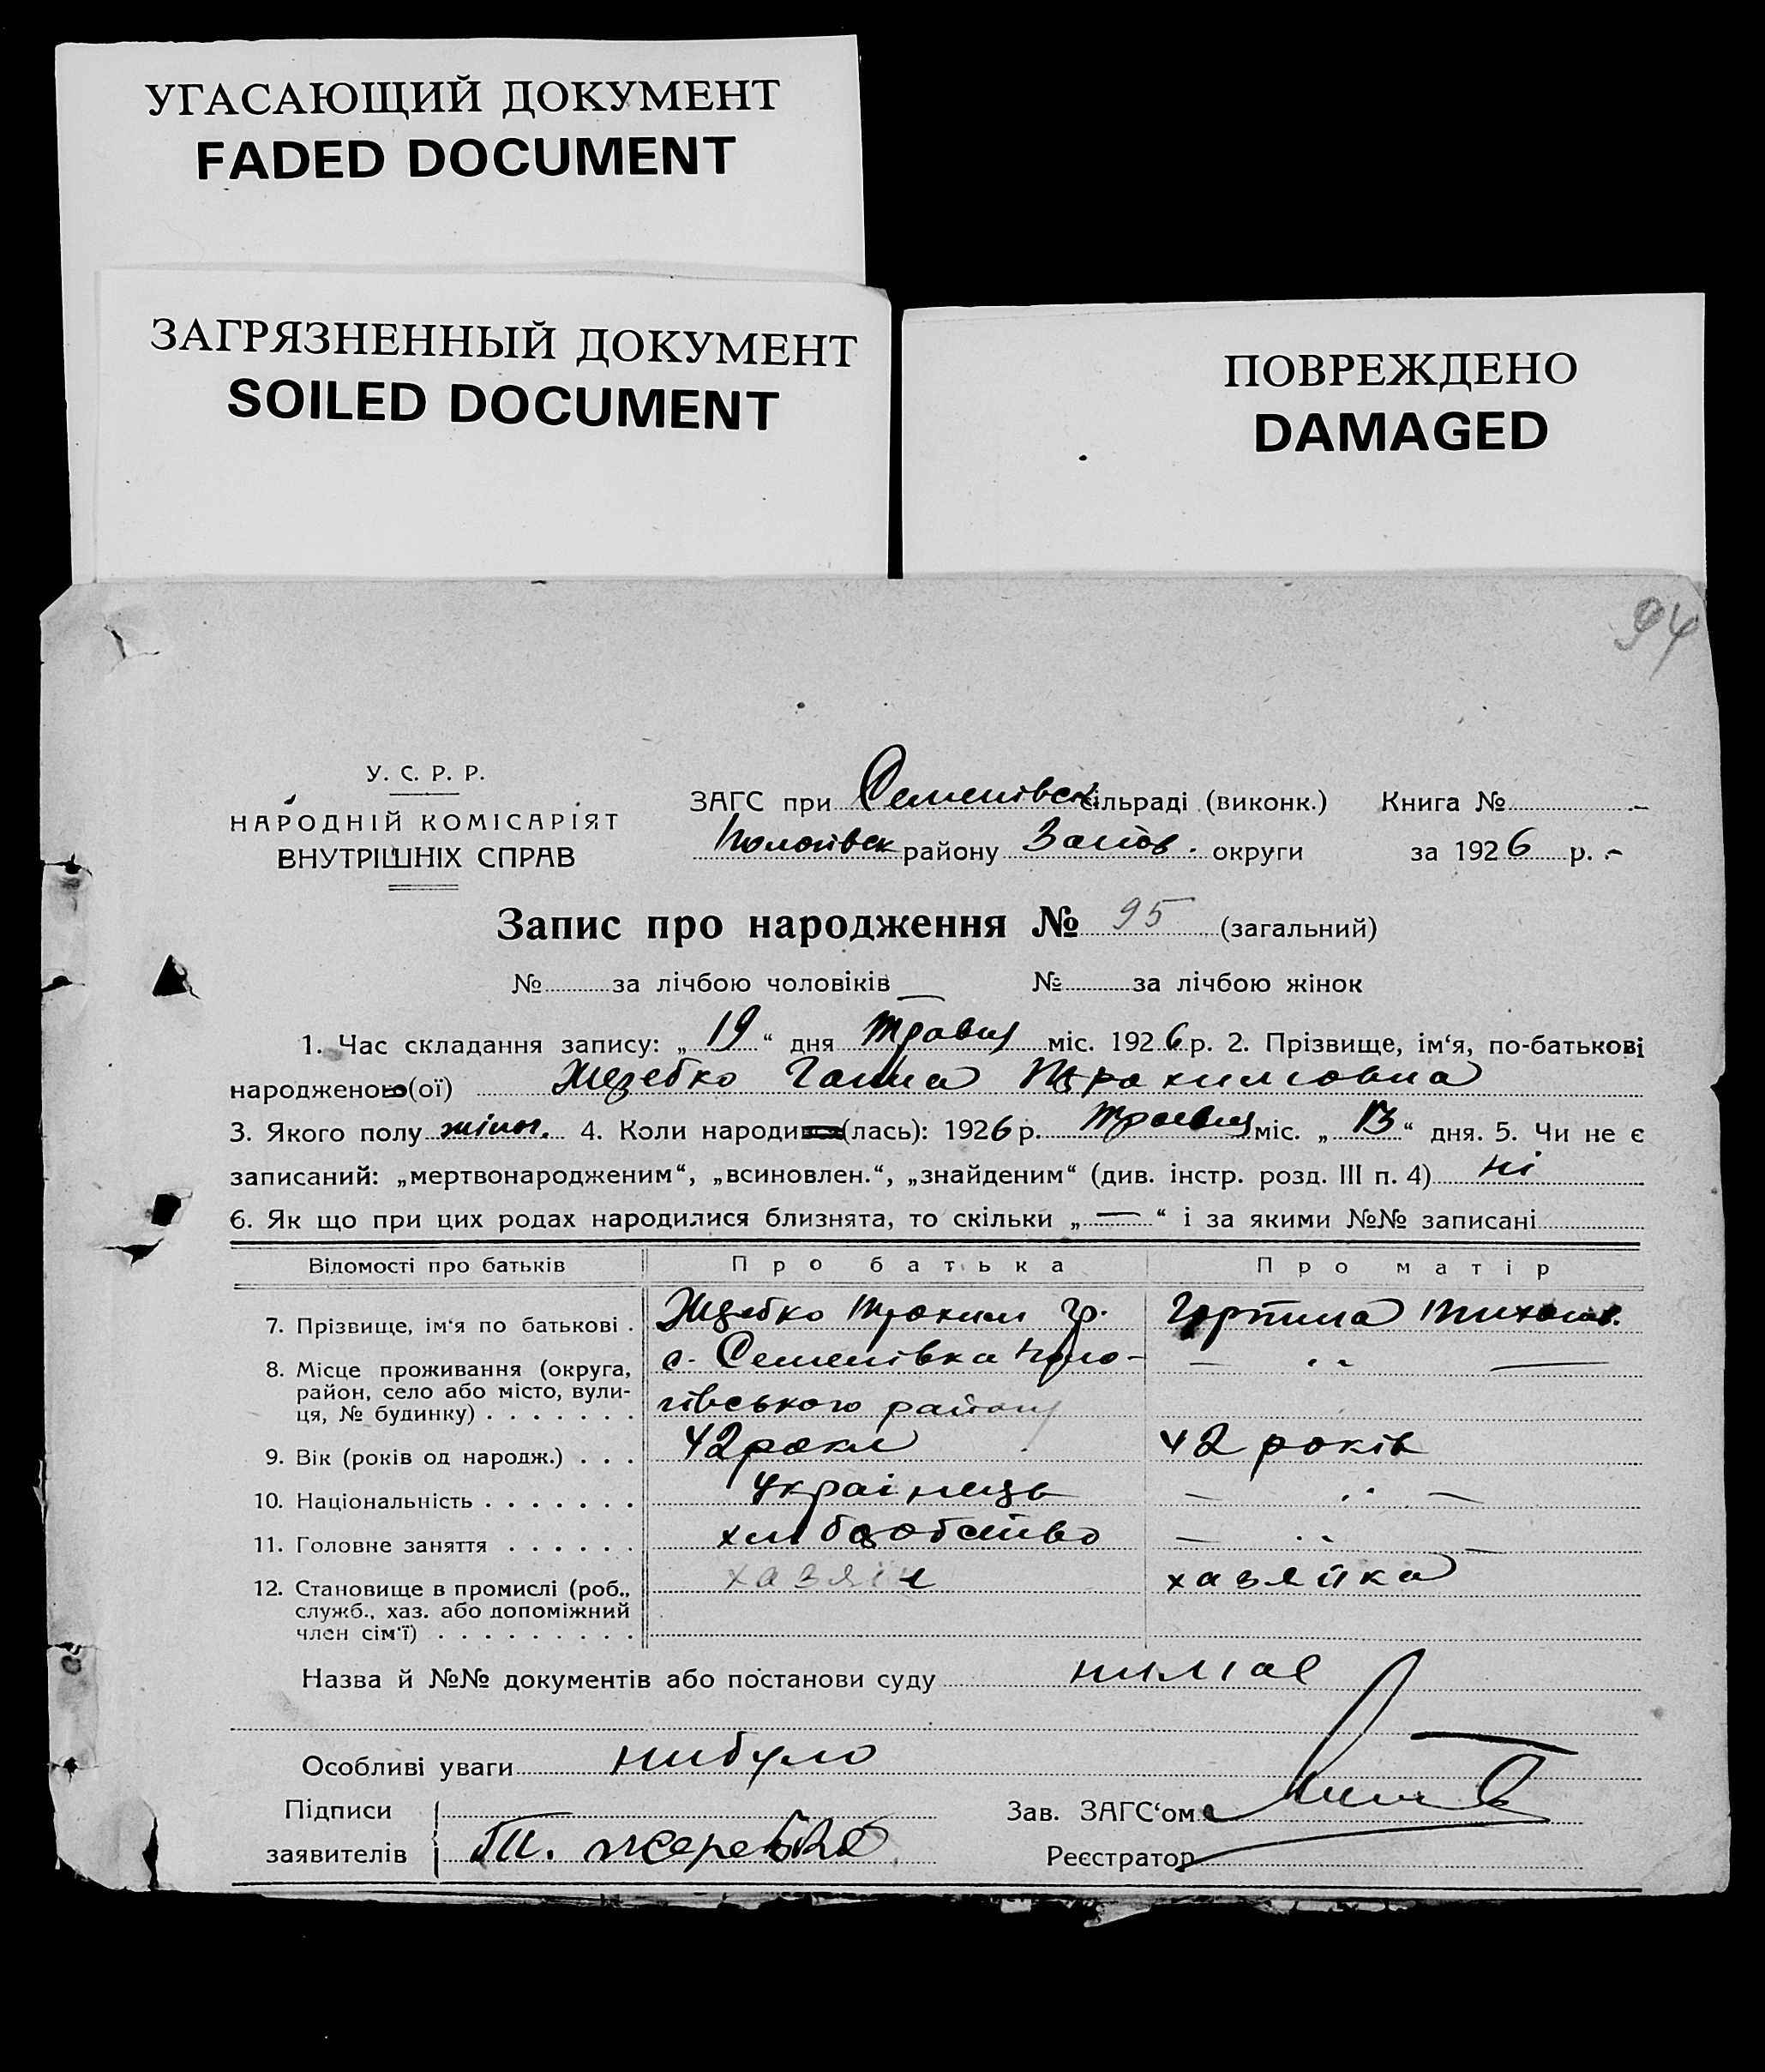 УГАСАЮЩИЙ ДОКУМЕНТ
FADED DOCUMENT
ЗАГРЯЗНЕННЫЙ ДОКУМЕНТ
SOILED DOCUMENT
ПОВРЕЖДЕНО
DAMAGED
94
У. С. Р. Р.
НАРОДНІЙ КОМІСАРІЯТ
ВНУТРІШНІХ СПРАВ
ЗАГС при Семенівск сільраді (виконк.) Книга №
Пологівск району Запов. округи за 1926 р.
Запис про народження № 95 (загальний)
№ за лічбою чоловіків — № за лічбою жінок
1. Час складання запису: „ 19 “ дня Травня міс. 1926 р. 2. Прізвище, ім‘я, по-батькові
народженого(ої) Жеребко Ганна Трохимовна
3. Якого полу жіноч. 4. Коли народився(лась): 1926 р. Травня міс. „ 13 “ дня. 5. Чи не є
записаний: „мертвонародженим“, „всиновлен.“, „знайденим“ (див. інстр. розд. III п. 4) ні
6. Як що при цих родах народилися близнята, то скільки „ — “ і за якими №№ записані
Відомості про батьків Про батька Про матір
7. Прізвище, ім‘я по батькові . Жеребко Трохим Гр. Гортина Тихонов.
8. Місце проживання (округа, с. Семенівка Поло- — „ —
район, село або місто, вули- гівського району
ця, № будинку) . . . . . . .
9. Вік (років од народж.) . . . 42 роки 42 років
10. Національність . . . . . . . українець — „ —
11. Головне заняття . . . . . . хліборобство — „ —
12. Становище в промислі (роб., хазяін хазяйка
служб., хаз. або допоміжний
член сім‘ї) . . . . . . . . .
Назва й №№ документів або постанови суду нимає
Особливі уваги нибуло
Підписи Зав. ЗАГС‘ом
заявителів Т. Жеребко Реєстратор